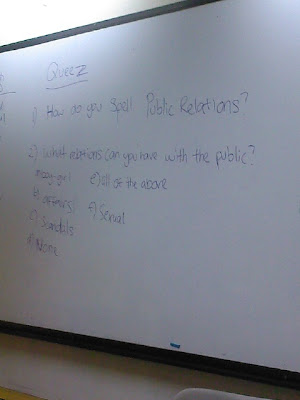 Queez
1) How do you Spell Public Relations?
2) What relations can you have with the public?
e) all of the above
b) affairs
f) Sexual
c) Scandals
d) None